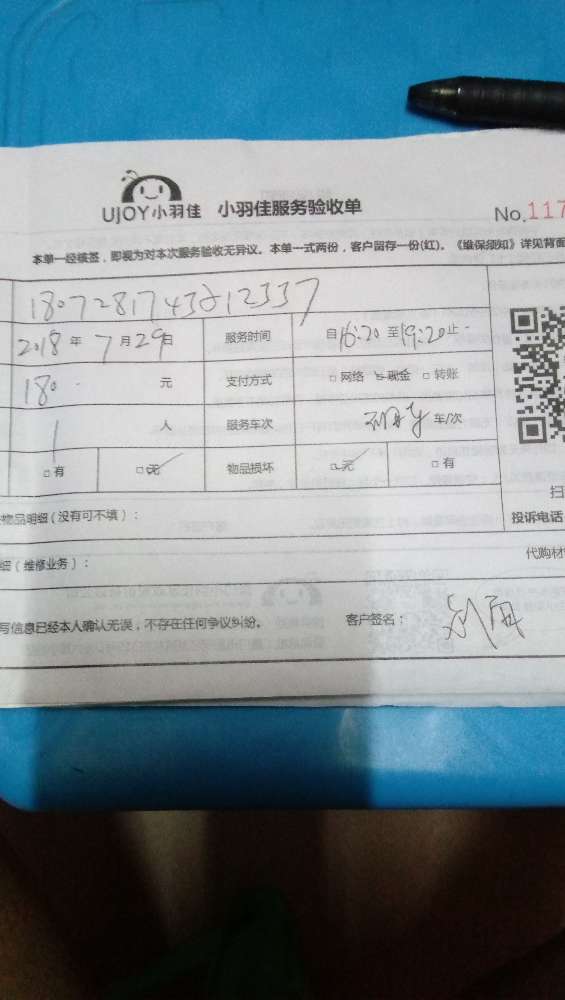 UJOY小羽佳 小羽佳服务验收单
No.117
本单一经核签，即视为对本次服务验收无异议。本单一式两份，客户留存一份(红)。《维保须知》详见背面
180728174312337
2018 年 7 月 29 日 服务时间 自 16:20 至 19:20 止
180 元 支付方式 □网络 □现金 □转账
1 人 服务车次 车/次
□有 □无 物品损坏 □无 □有
物品明细（没有可不填）：
扫
投诉电话
细（维修业务）：
代购材
写信息已经本人确认无误，不存在任何争议纠纷。 客户签名：